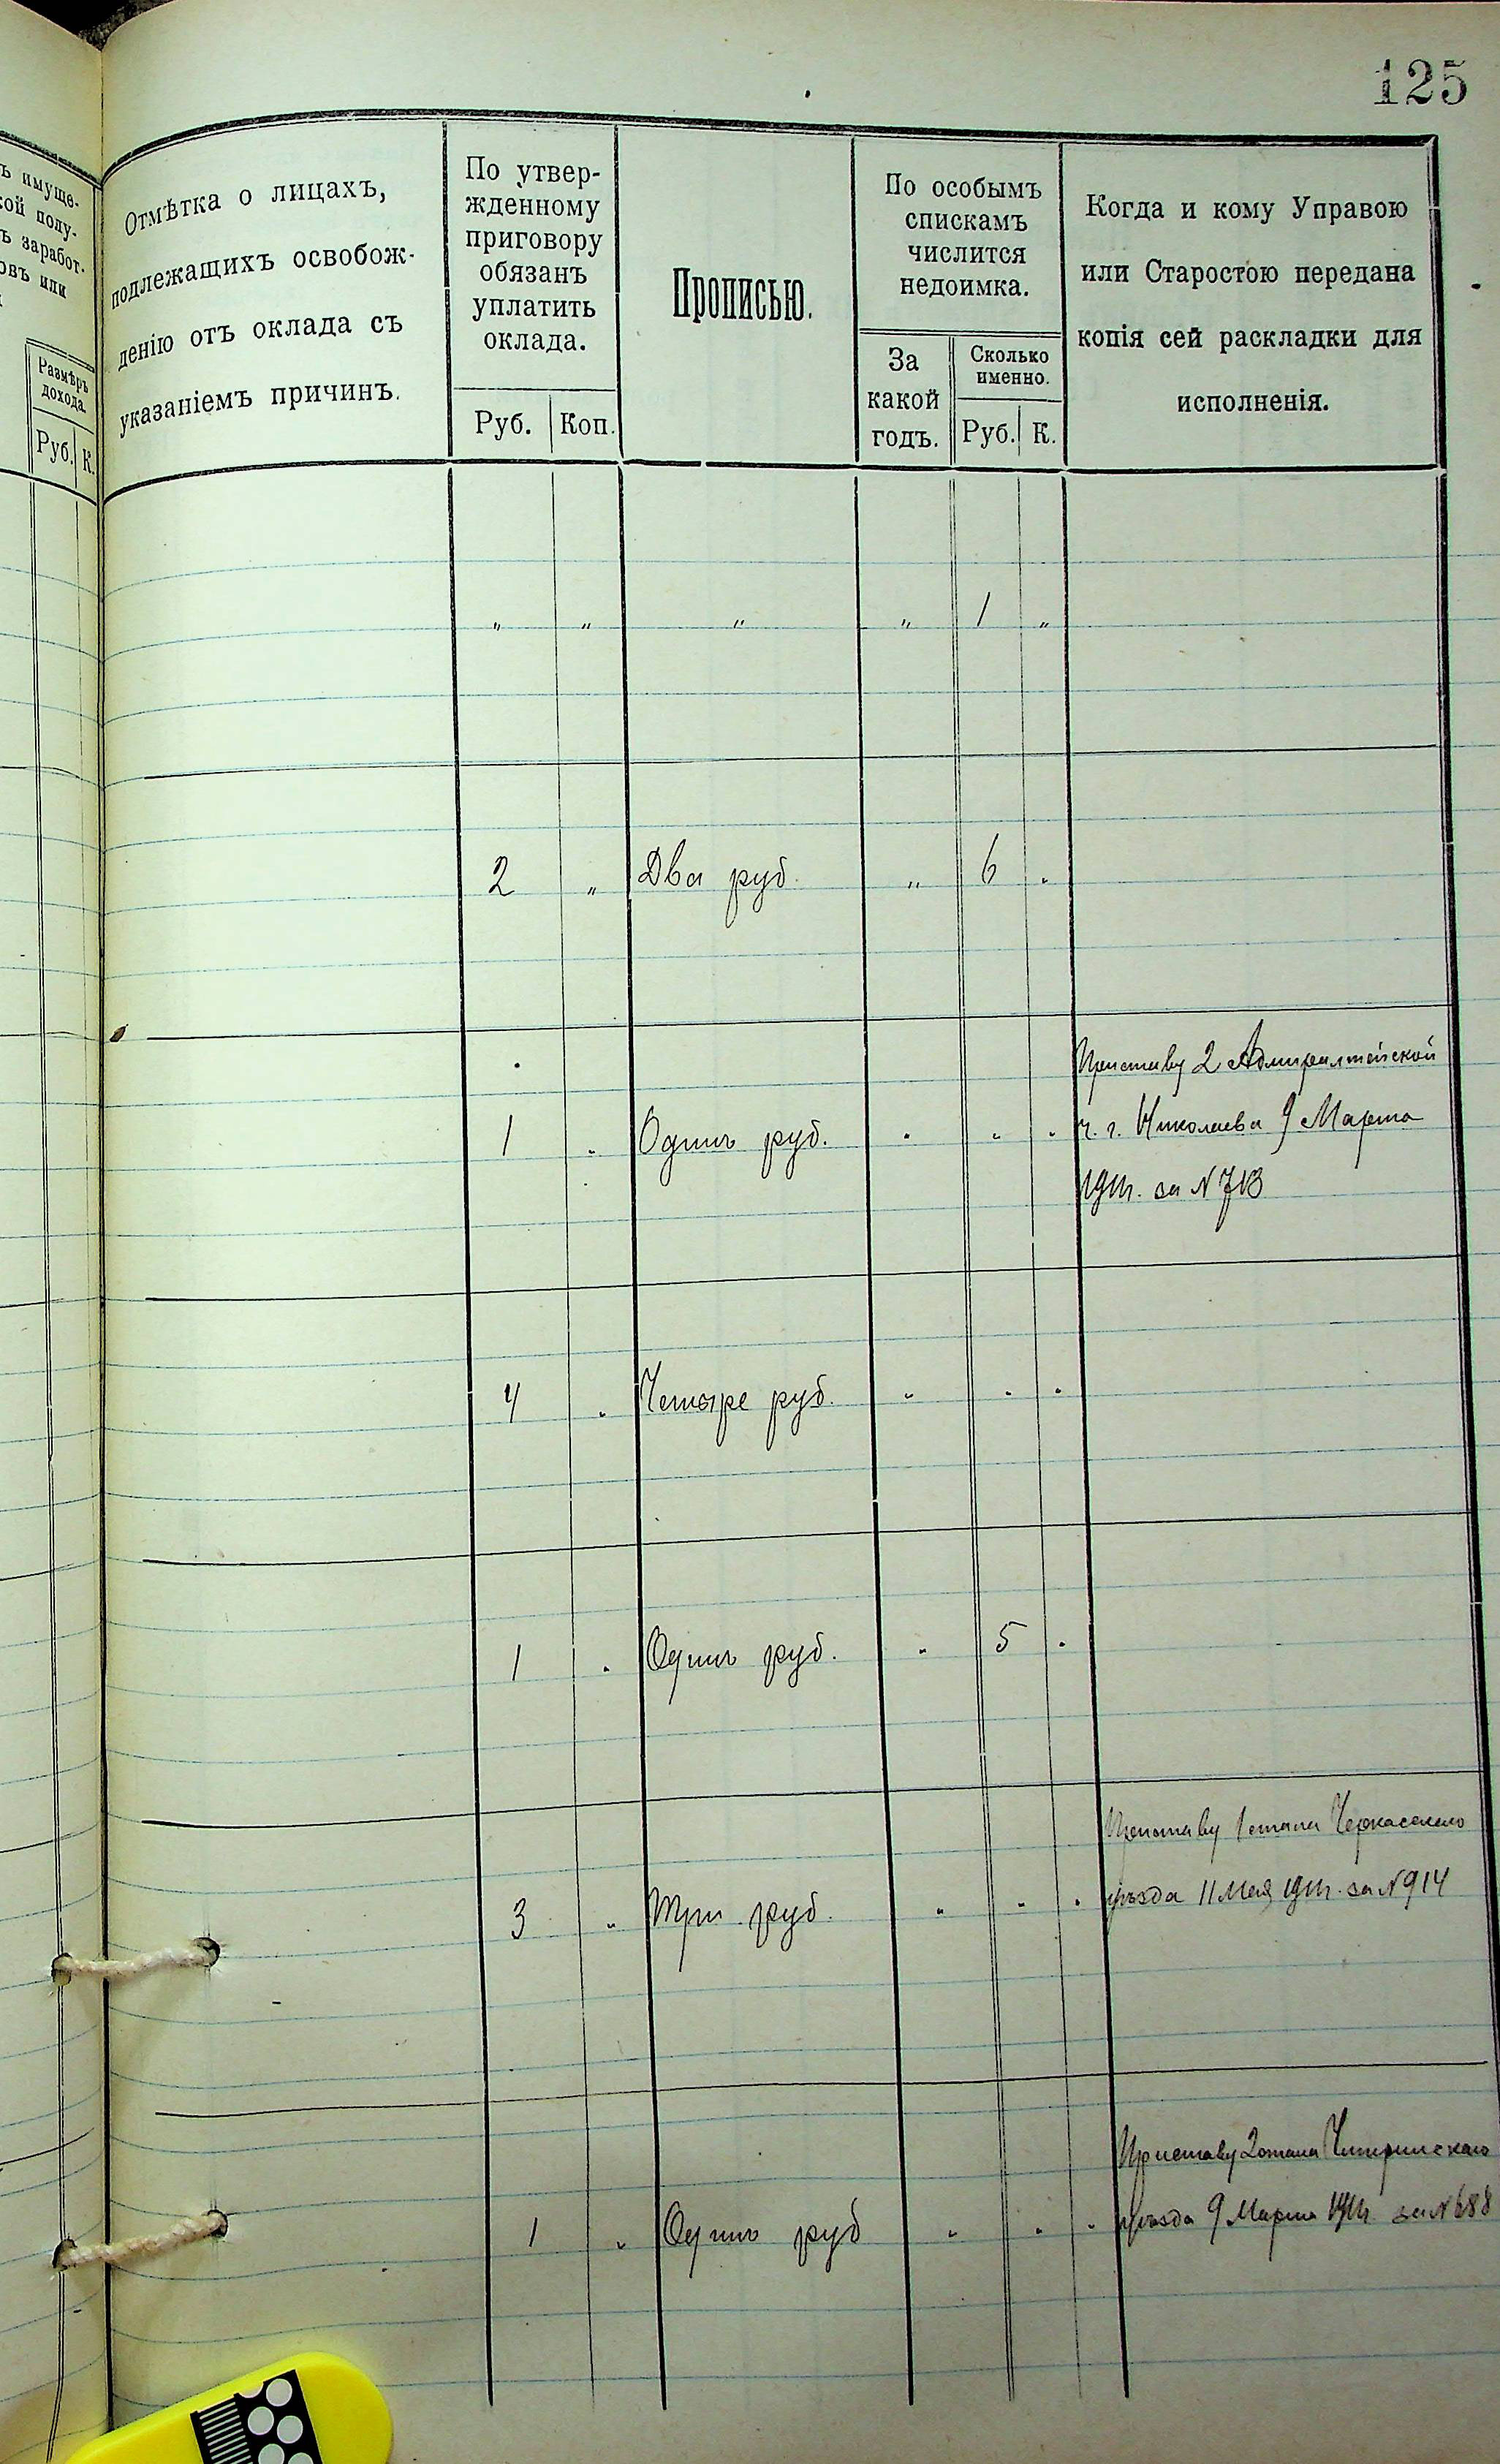 125
ъ имуще-
ой полу-
ъ заработ-
овъ или
Размѣръ
дохода.
Руб. К.
Отмѣтка о лицахъ,
подлежащихъ освобож-
денію отъ оклада съ
указаніемъ причинъ.
По утвер-
жденному
приговору
обязанъ
уплатить
оклада.
Руб. Коп.
Прописью.
По особымъ
спискамъ
числится
недоимка.
За
какой
годъ.
Сколько
именно.
Руб. К.
Когда и кому Управою
или Старостою передана
копія сей раскладки для
исполненія.
" " " " 1 "
2 " Два руб. " 6 "
1 " Одинъ руб. " " "
Приставу 2 Адмиралтейской
ч. г. Николаева 9 Марта
за № 713
4 " Четыре руб. " " "
1 " Одинъ руб. " 5 "
3 " Три руб. " " "
Приставу 1 стана Черкасскаго
уѣзда 11 Мая за № 914
1 " Одинъ руб " " "
Приставу 2 стана Чигиринскаго
уѣзда 9 Марта за № 688